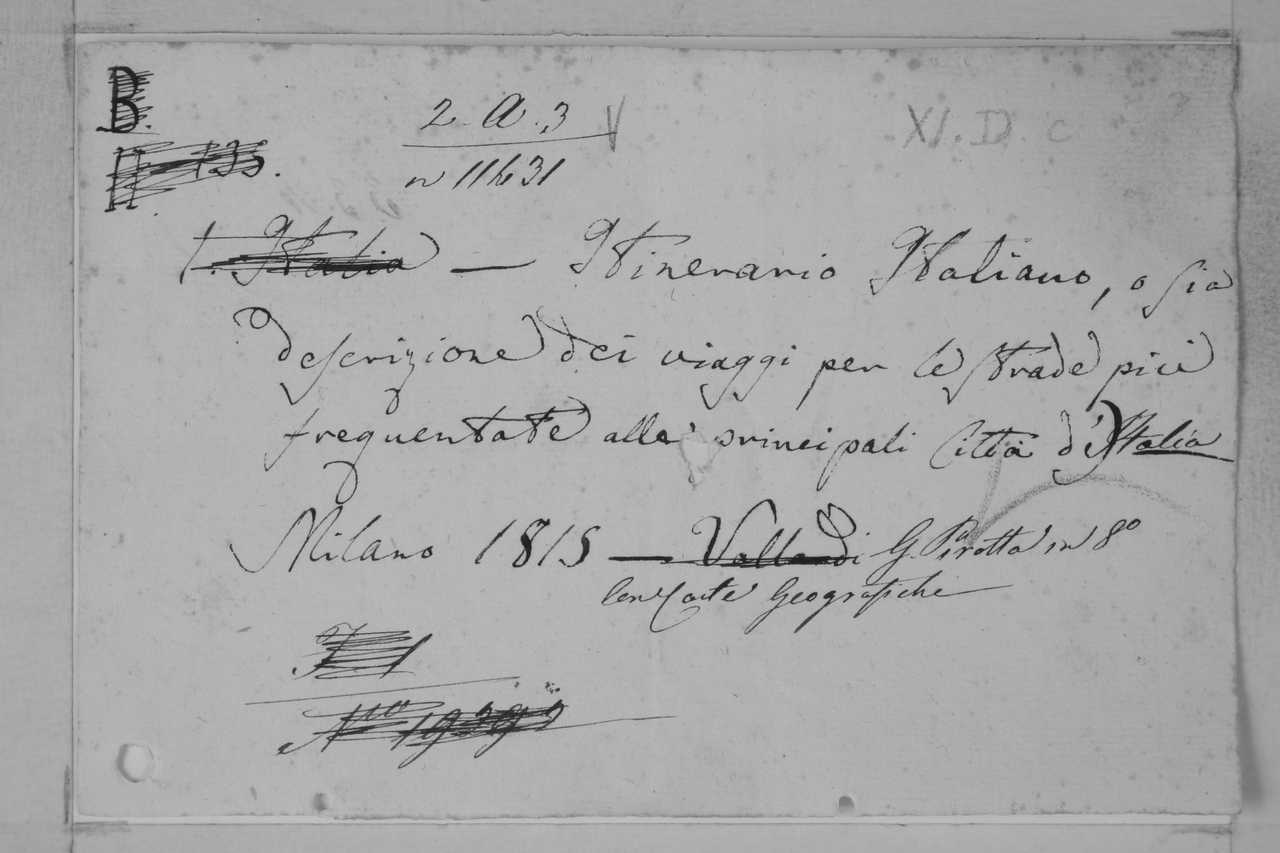 B.
2. A. 3 V
XI. D. c
II 135.
n 11631
1. Italia — Itinerario Italiano, o sia
descrizione dei viaggi per le strade più
frequentate alle principali Città d'Italia
Milano 1815 — Vallardi G. Pirotta in 8º
Con Carte Geografiche